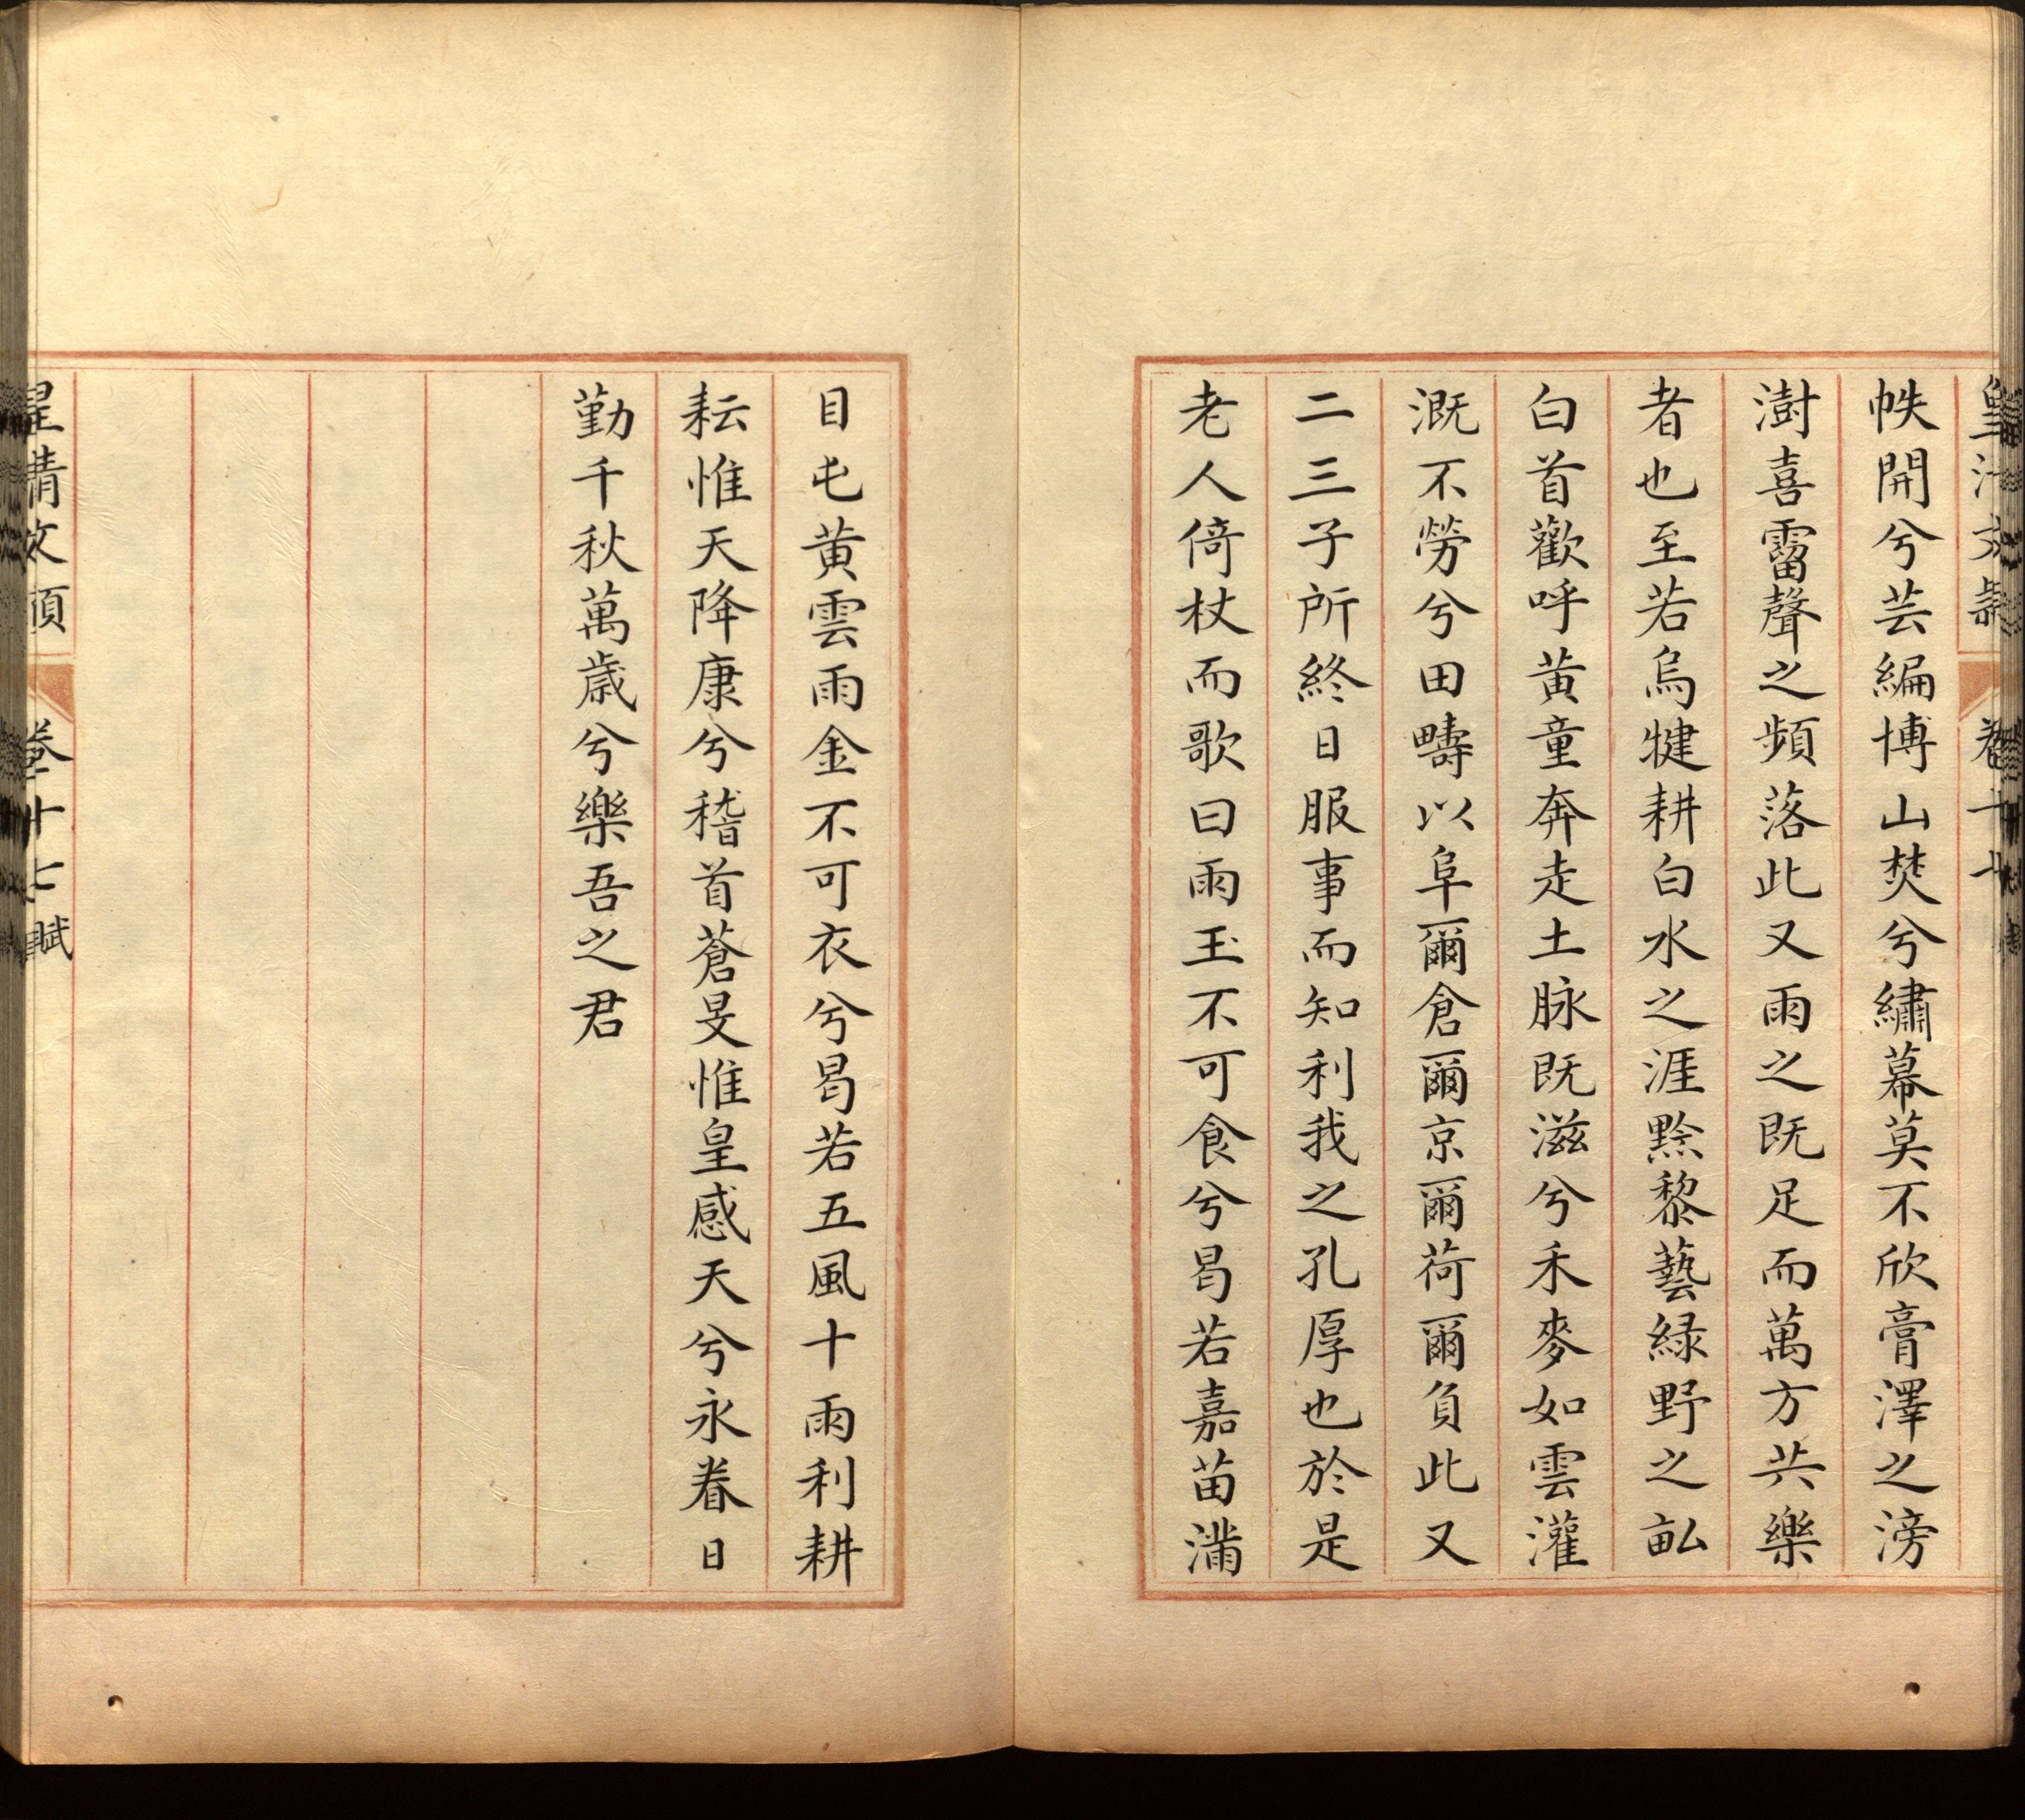 皇清文穎 卷十七
帙開兮芸編博山焚兮繡幕莫不欣膏澤之滂
澍喜霤聲之頻落此又雨之既足而萬方共樂
者也至若烏犍耕白水之涯黲黎藝緑野之畆
白首歡呼黃童奔走土脉既滋兮禾麥如雲灌
溉不勞兮田疇以阜爾倉爾京爾荷爾負此又
二三子所終日服事而知利我之孔厚也於是
老人倚杖而歌曰雨玉不可食兮曷若嘉苗滿
目屯黃雲雨金不可衣兮曷若五風十雨利耕
耘惟天降康兮稽首蒼旻惟皇感天兮永眷日
勤千秋萬歳兮樂吾之君
皇清文穎 卷十七 賦